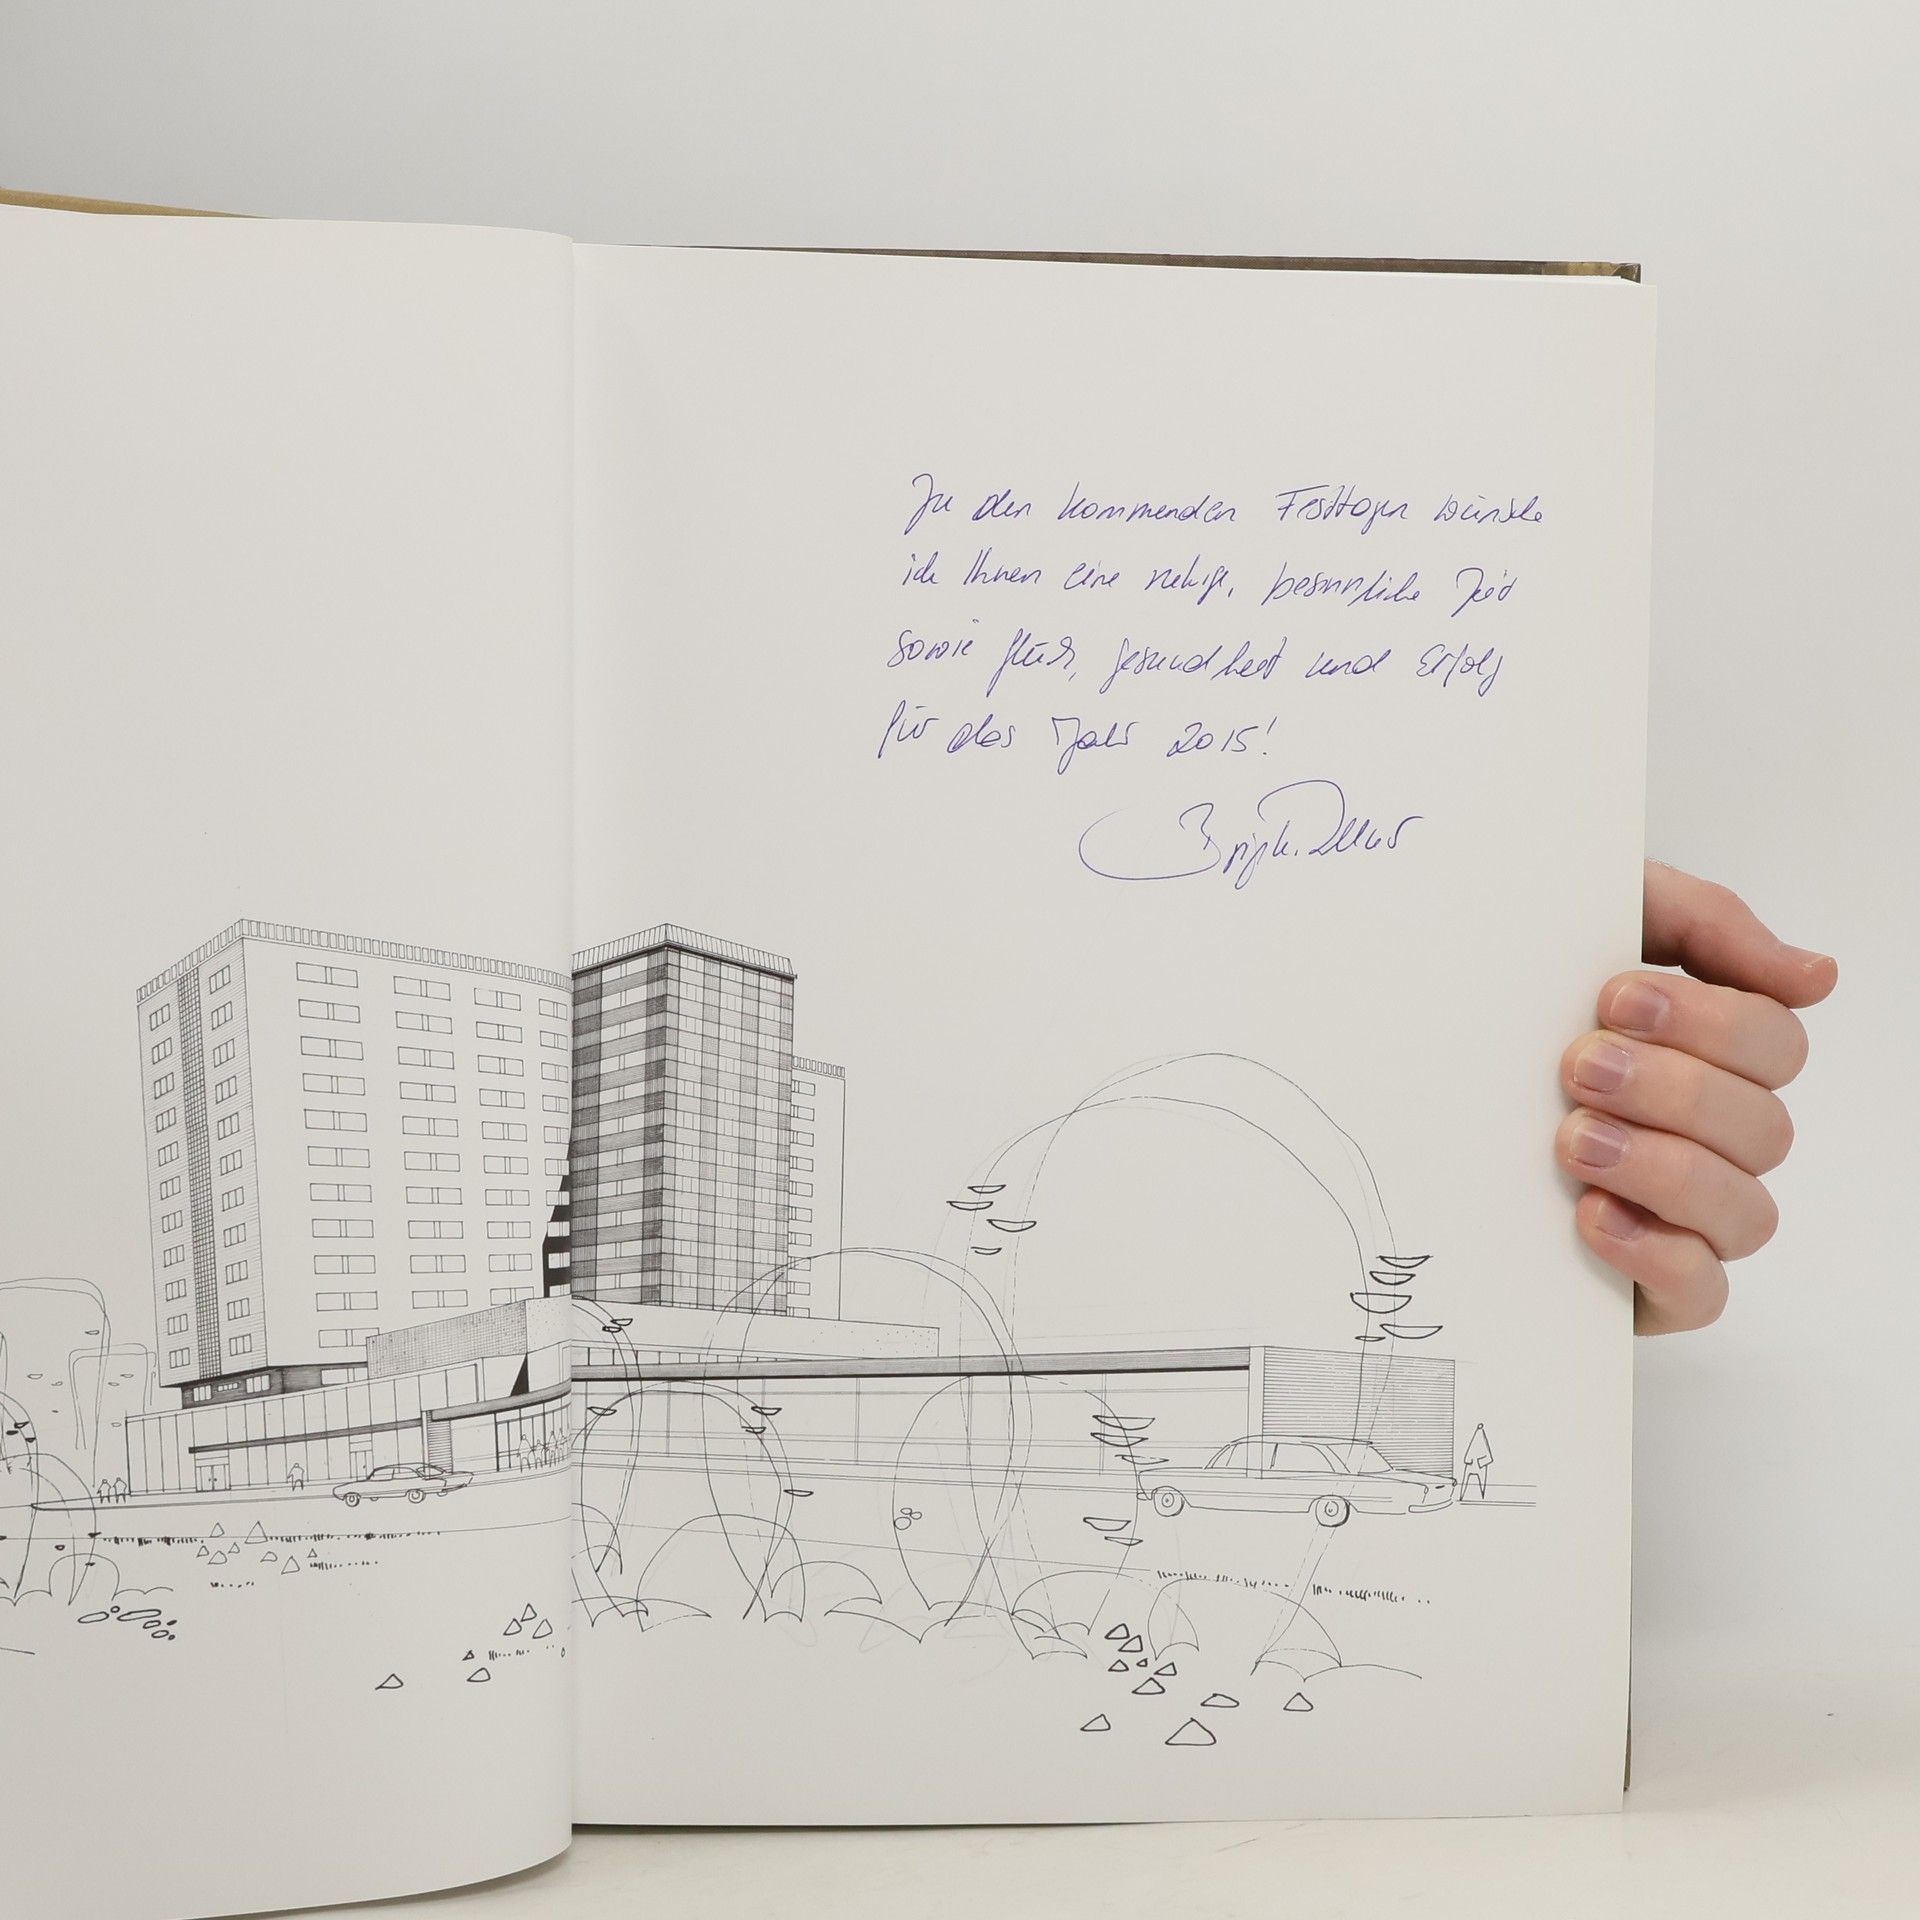 Zu den kommenden Festtagen wünsche
ich Ihnen eine ruhige, besinnliche Zeit
sowie Glück, Gesundheit und Erfolg
für das Jahr 2015!